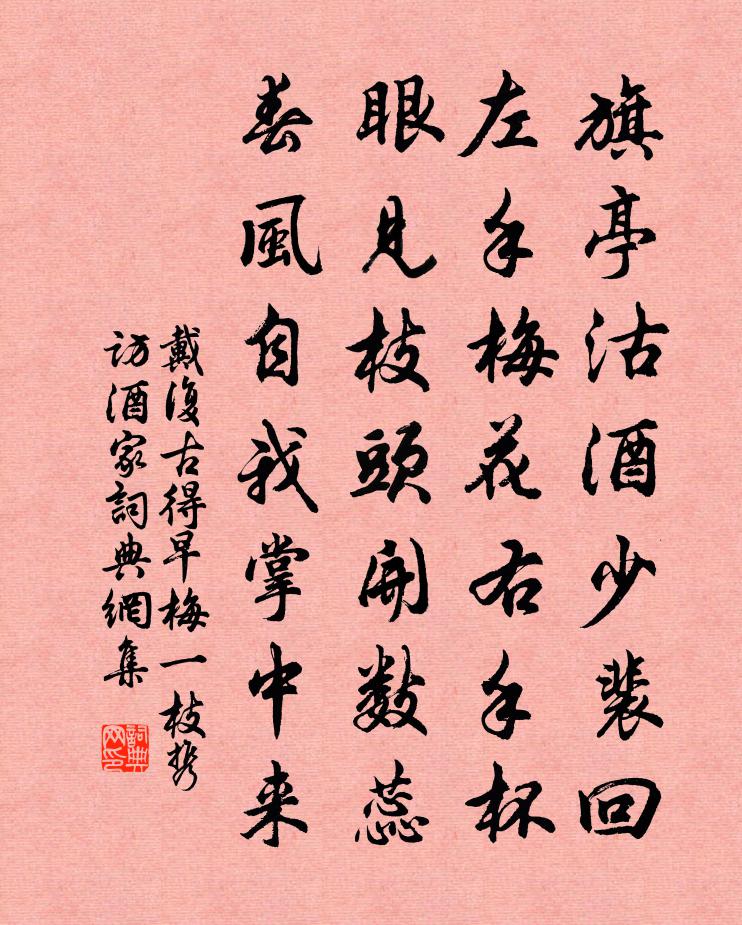 旗亭沽酒少裴回
左手梅花右手杯
眼見枝頭開數蕊
春風自我掌中来
戴復古得早梅一枝携
访酒家詞典網集
詞典网印